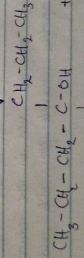 CH₂-CH₂-CH₃
|
CH₃-CH₂-CH₂-C-OH +